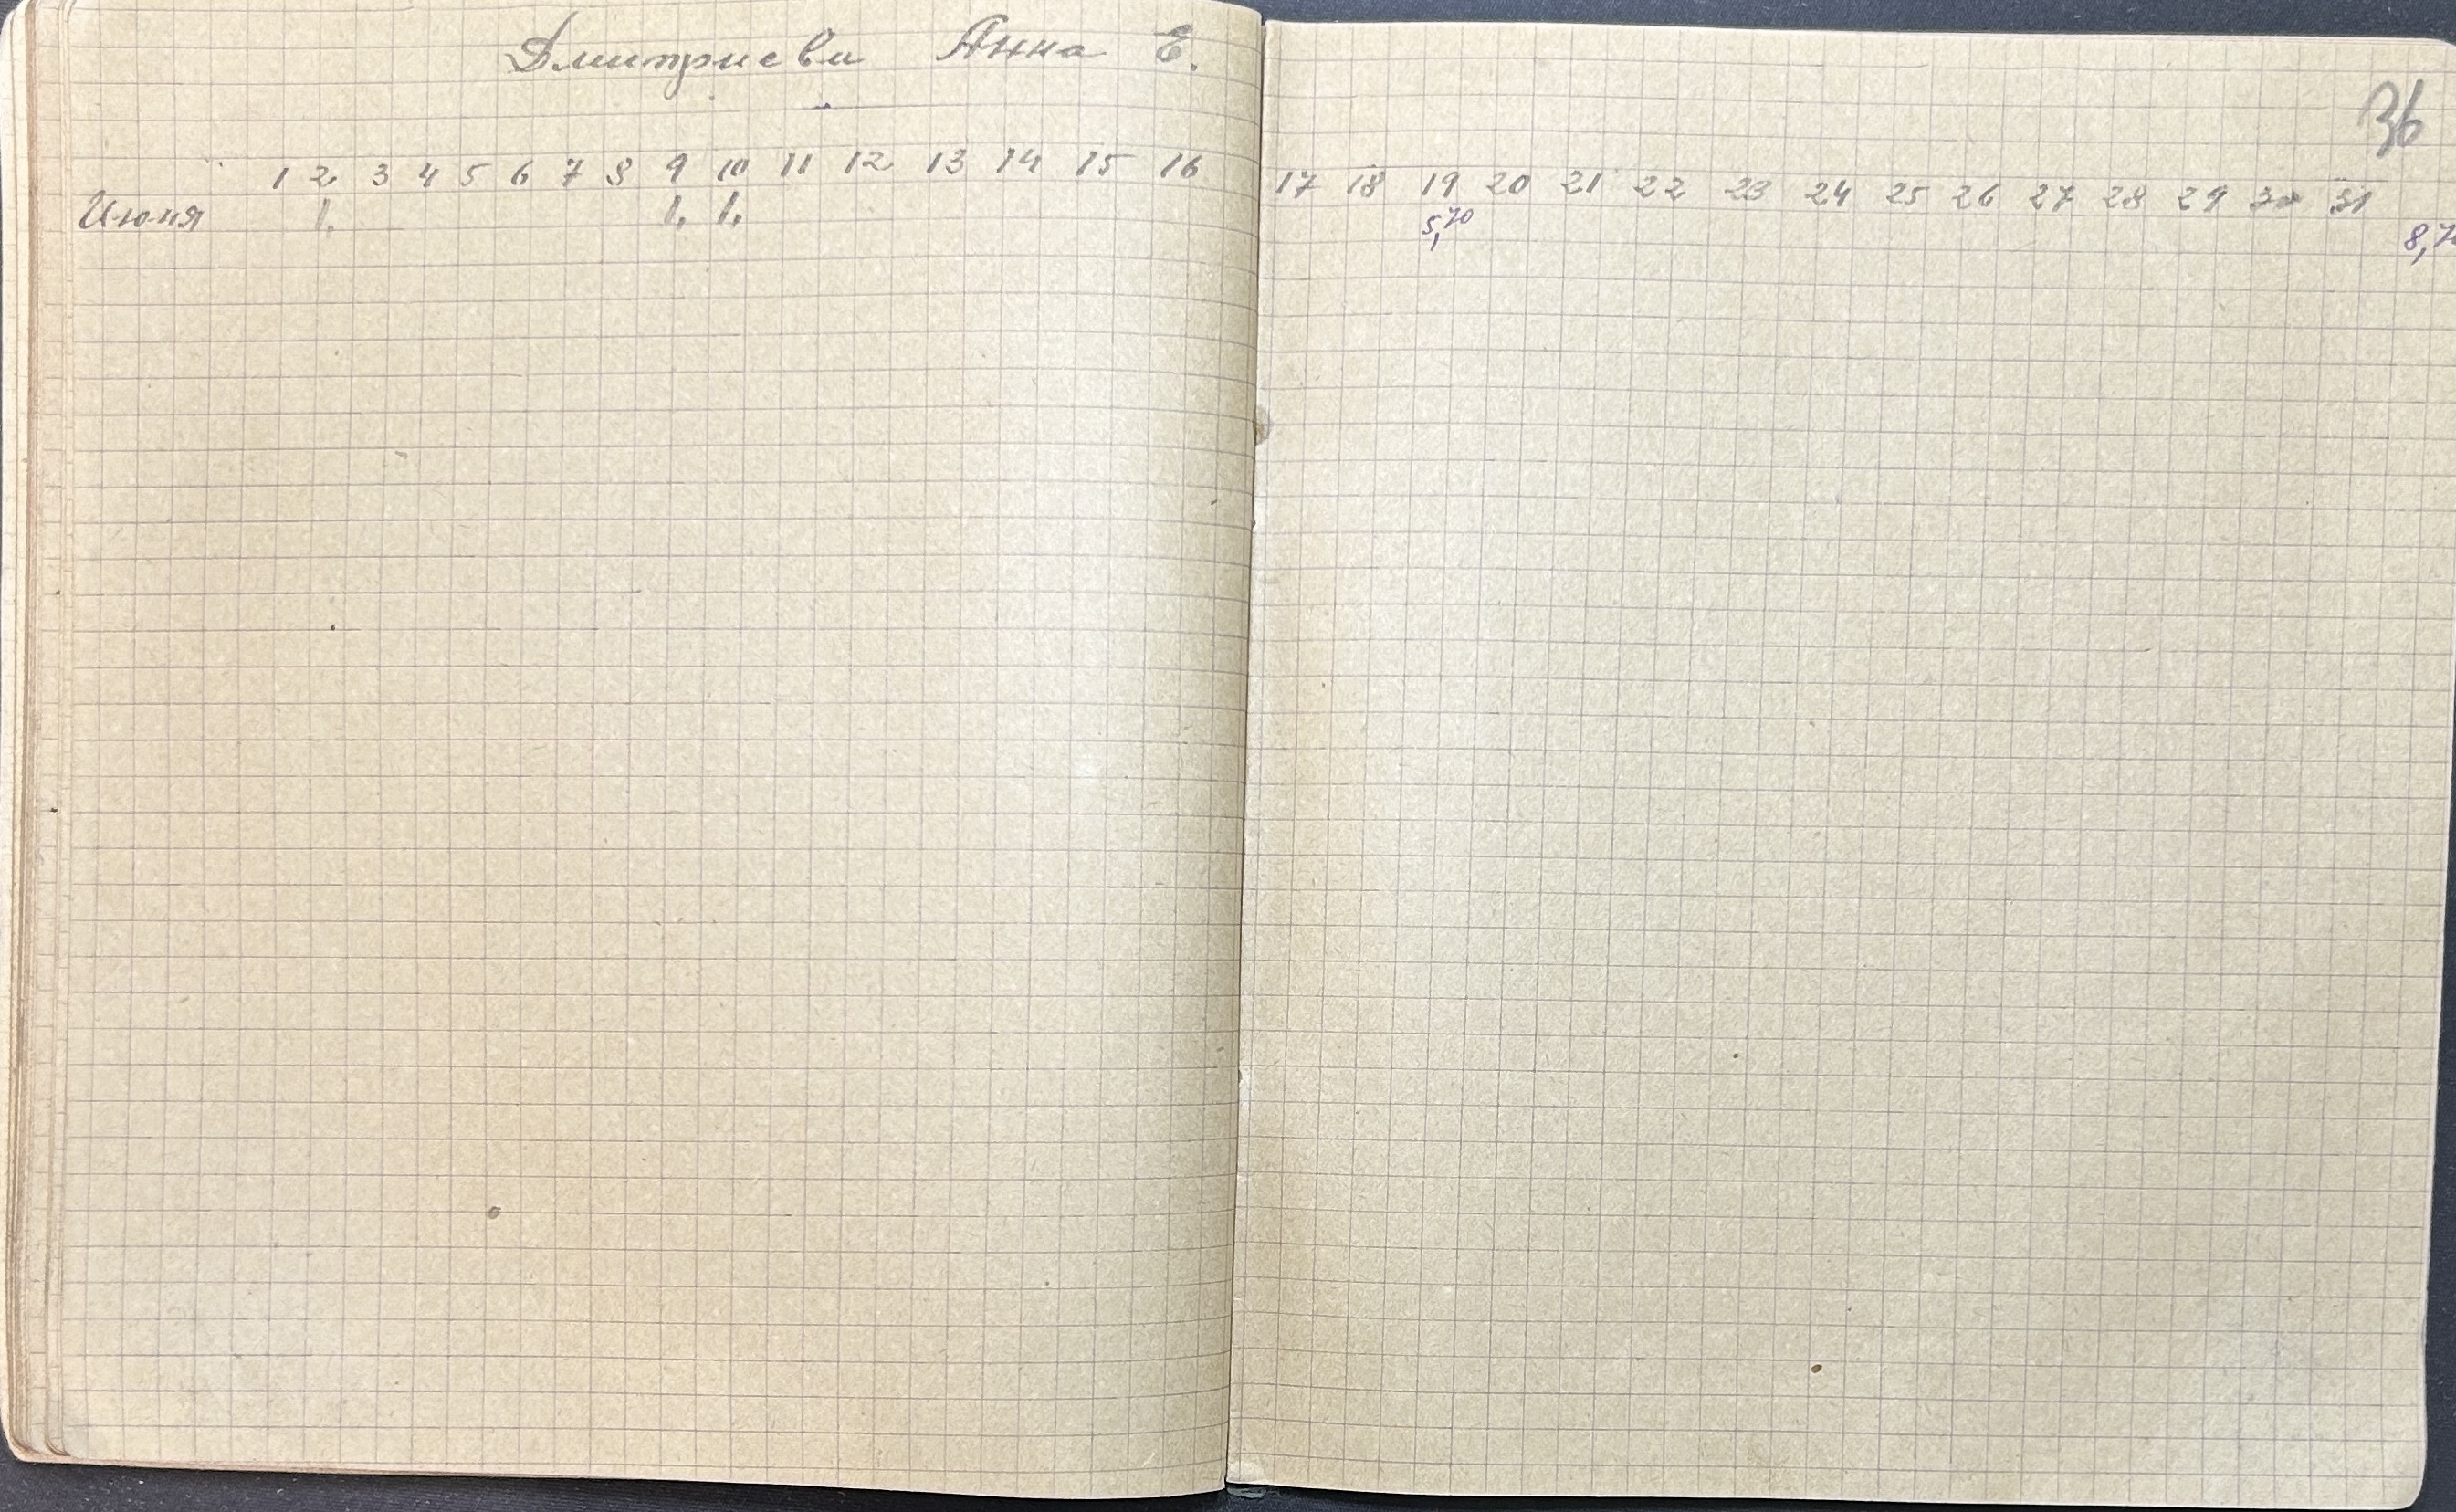 Дмитриева Анна Е.
36
1 2 3 4 5 6 7 8 9 10 11 12 13 14 15 16 17 18 19 20 21 22 23 24 25 26 27 28 29 30 31
Июня 1. 1. 1. 5,70 8,7